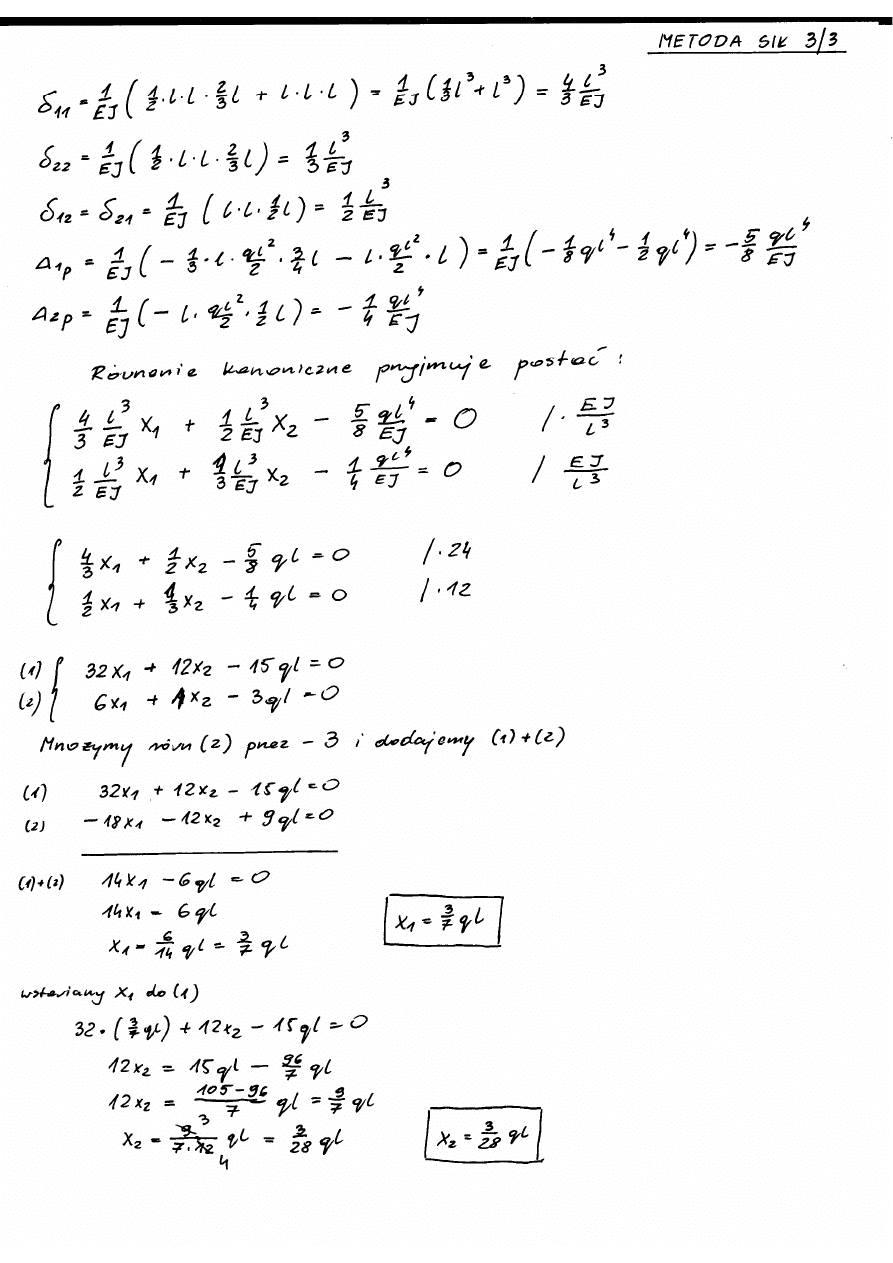 METODA SIŁ 3/3
δ₁₁ = 1/EJ ( 1/2 · l · l · 2/3 l + l · l · l ) = 1/EJ ( 1/3 l³ + l³ ) = 4/3 l³/EJ
δ₂₂ = 1/EJ ( 1/2 · l · l · 2/3 l ) = 1/3 l³/EJ
δ₁₂ = δ₂₁ = 1/EJ ( l · l · 1/2 l ) = 1/2 l³/EJ
Δ₁p = 1/EJ ( − 1/3 · l · ql²/2 · 3/4 l − l · ql²/2 · l ) = 1/EJ ( − 1/8 ql⁴ − 1/2 ql⁴ ) = − 5/8 ql⁴/EJ
Δ₂p = 1/EJ ( − l · ql²/2 · 1/2 l ) = − 1/4 ql⁴/EJ
Równanie kanoniczne przyjmuje postać :
4/3 l³/EJ x₁ + 1/2 l³/EJ x₂ − 5/8 ql⁴/EJ = 0 / · EJ/l³
1/2 l³/EJ x₁ + 1/3 l³/EJ x₂ − 1/4 ql⁴/EJ = 0 / EJ/l³
4/3 x₁ + 1/2 x₂ − 5/8 ql = 0 / · 24
1/2 x₁ + 1/3 x₂ − 1/4 ql = 0 / · 12
(1) 32x₁ + 12x₂ − 15ql = 0
(2) 6x₁ + x₂ − 3ql = 0
Mnożymy równ (2) przez − 3 i dodajemy (1)+(2)
(1) 32x₁ + 12x₂ − 15ql = 0
(2) −18x₁ − 12x₂ + 9ql = 0
(1)+(2) 14x₁ − 6ql = 0
14x₁ = 6ql
x₁ = 6/14 ql = 3/7 ql x₁ = 3/7 ql
wstawiamy x₁ do (1)
32 · (3/7 ql) + 12x₂ − 15ql = 0
12x₂ = 15ql − 96/7 ql
12x₂ = 105−96/7 ql = 9/7 ql
x₂ = 9 3/7·12 4 ql = 3/28 ql x₂ = 3/28 ql